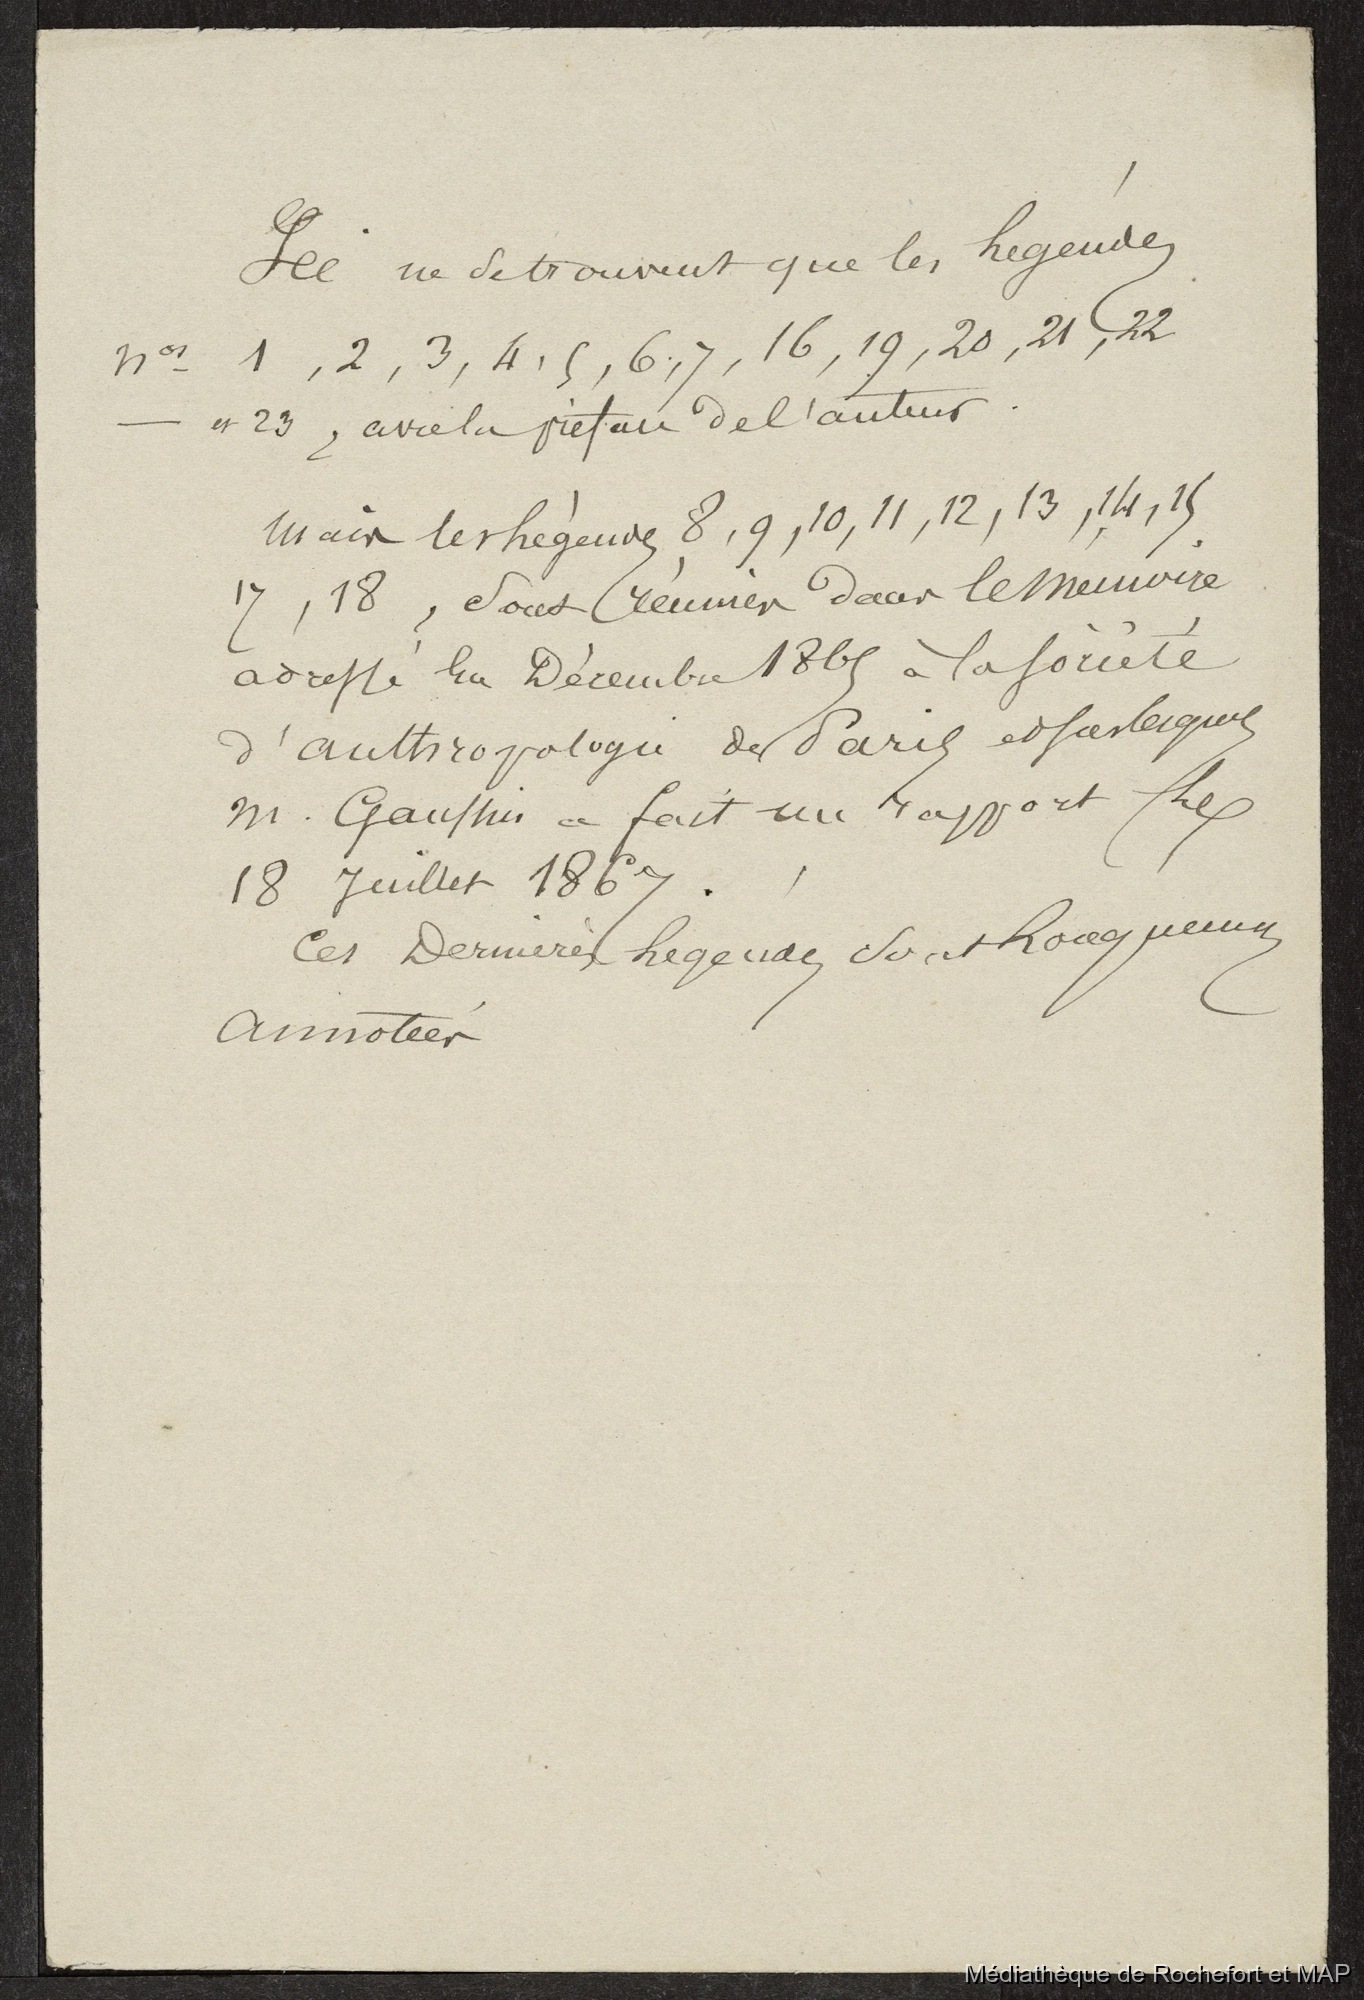 Ici ne se trouvent que les légendes
nos 1, 2, 3, 4, 5, 6, 7, 16, 19, 20, 21, 22
— et 23, avec la préface de l'auteur.
Mais les légendes 8, 9, 10, 11, 12, 13, 14, 15,
17, 18, sont réunies dans le Mémoire
adressé en Décembre 1865 à la Société
d'anthropologie de Paris et sur lesquels
M. Gaussin a fait un rapport le
18 Juillet 1867.
Ces Dernières légendes sont longuement
annotées
Médiathèque de Rochefort et MAP